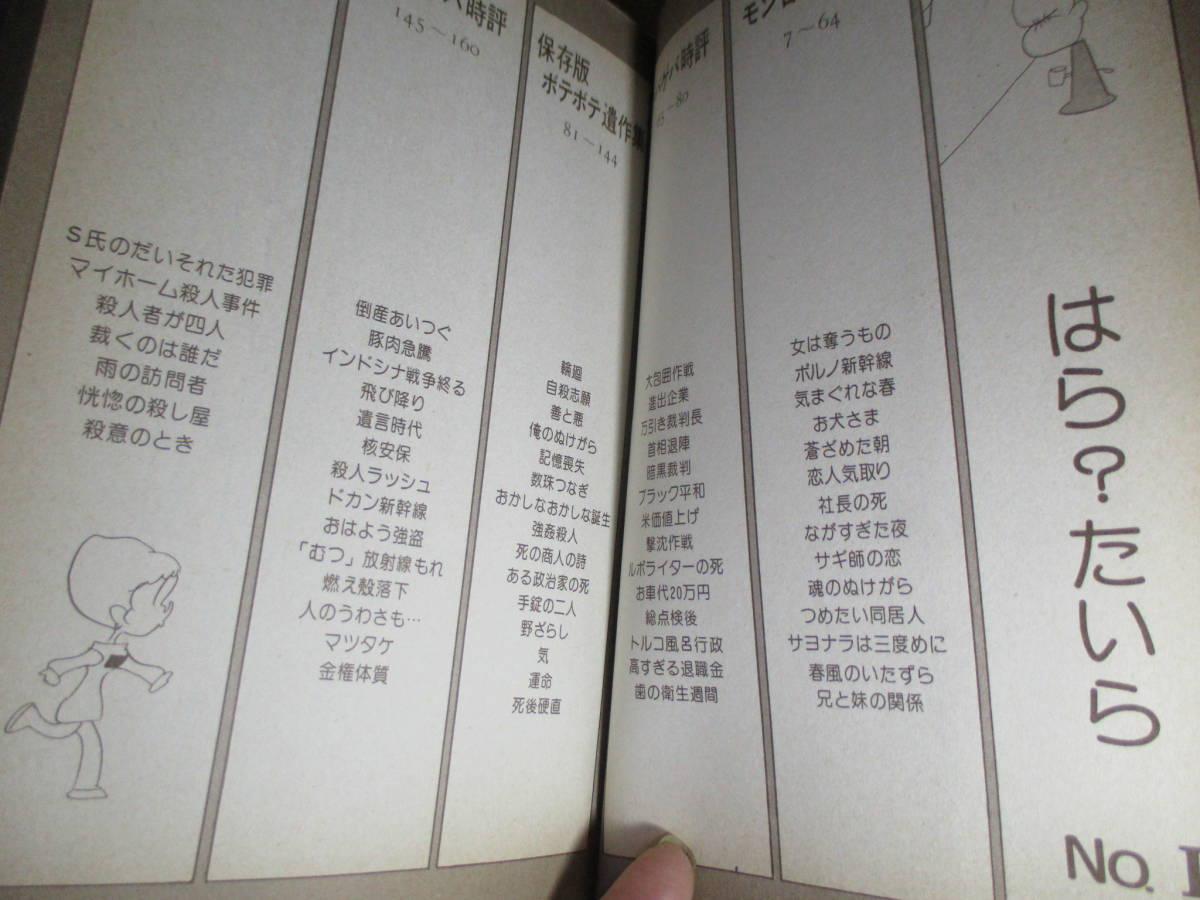 はら?たいら
No.
7〜64
女は奪うもの
ポルノ新幹線
気まぐれな春
お犬さま
蒼ざめた朝
恋人気取り
社長の死
ながすぎた夜
サギ師の恋
魂のぬけがら
つめたい同居人
サヨナラは三度めに
春風のいたずら
兄と妹の関係
時評
〜80
大包囲作戦
進出企業
万引き裁判長
首相退陣
暗黒裁判
ブラック平和
米価値上げ
撃沈作戦
ルポライターの死
お車代20万円
総点検後
トルコ風呂行政
高すぎる退職金
歯の衛生週間
保存版
ポテポテ遺作集
81〜144
輪廻
自殺志願
善と悪
俺のぬけがら
記憶喪失
数珠つなぎ
おかしなおかしな誕生
強姦殺人
死の商人の詩
ある政治家の死
手錠の二人
野ざらし
気
運命
死後硬直
時評
145〜160
倒産あいつぐ
豚肉急騰
インドシナ戦争終る
飛び降り
遺言時代
核安保
殺人ラッシュ
ドカン新幹線
おはよう強盗
「むつ」放射線もれ
燃え殻落下
人のうわさも…
マツタケ
金権体質
S氏のだいそれた犯罪
マイホーム殺人事件
殺人者が四人
裁くのは誰だ
雨の訪問者
恍惚の殺し屋
殺意のとき